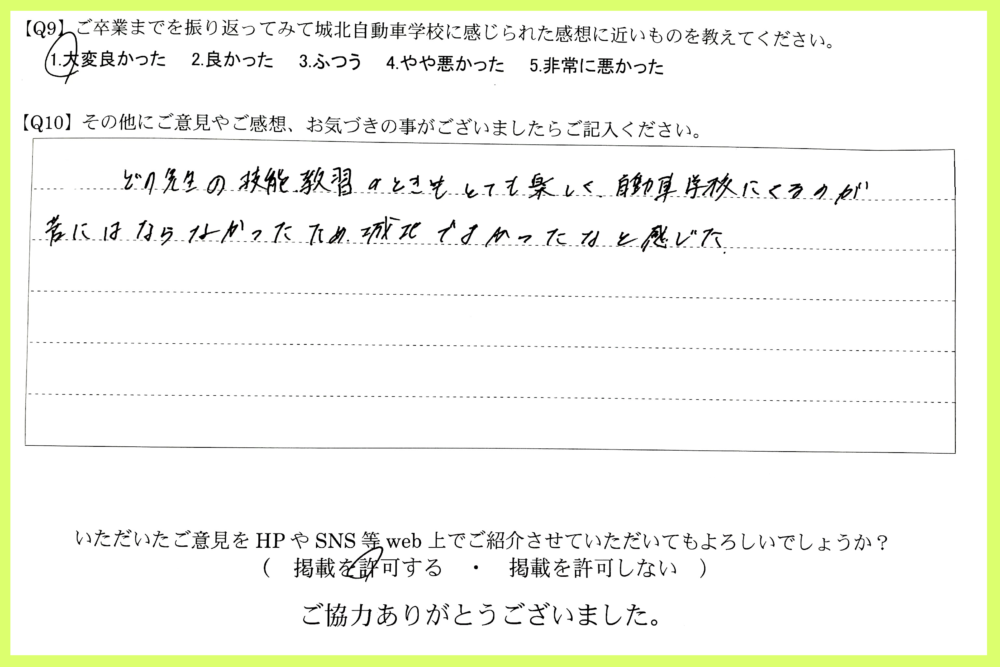 【Q9】ご卒業までを振り返ってみて城北自動車学校に感じられた感想に近いものを教えてください。
1.大変良かった 2.良かった 3.ふつう 4.やや悪かった 5.非常に悪かった
【Q10】その他にご意見やご感想、お気づきの事がございましたらご記入ください。
どの先生の技能教習のときもとても楽しく、自動車学校にくるのが
苦にはならなかったため、城北でよかったなと感じた。
いただいたご意見をHPやSNS等web上でご紹介させていただいてもよろしいでしょうか？
（ 掲載を許可する ・ 掲載を許可しない ）
ご協力ありがとうございました。